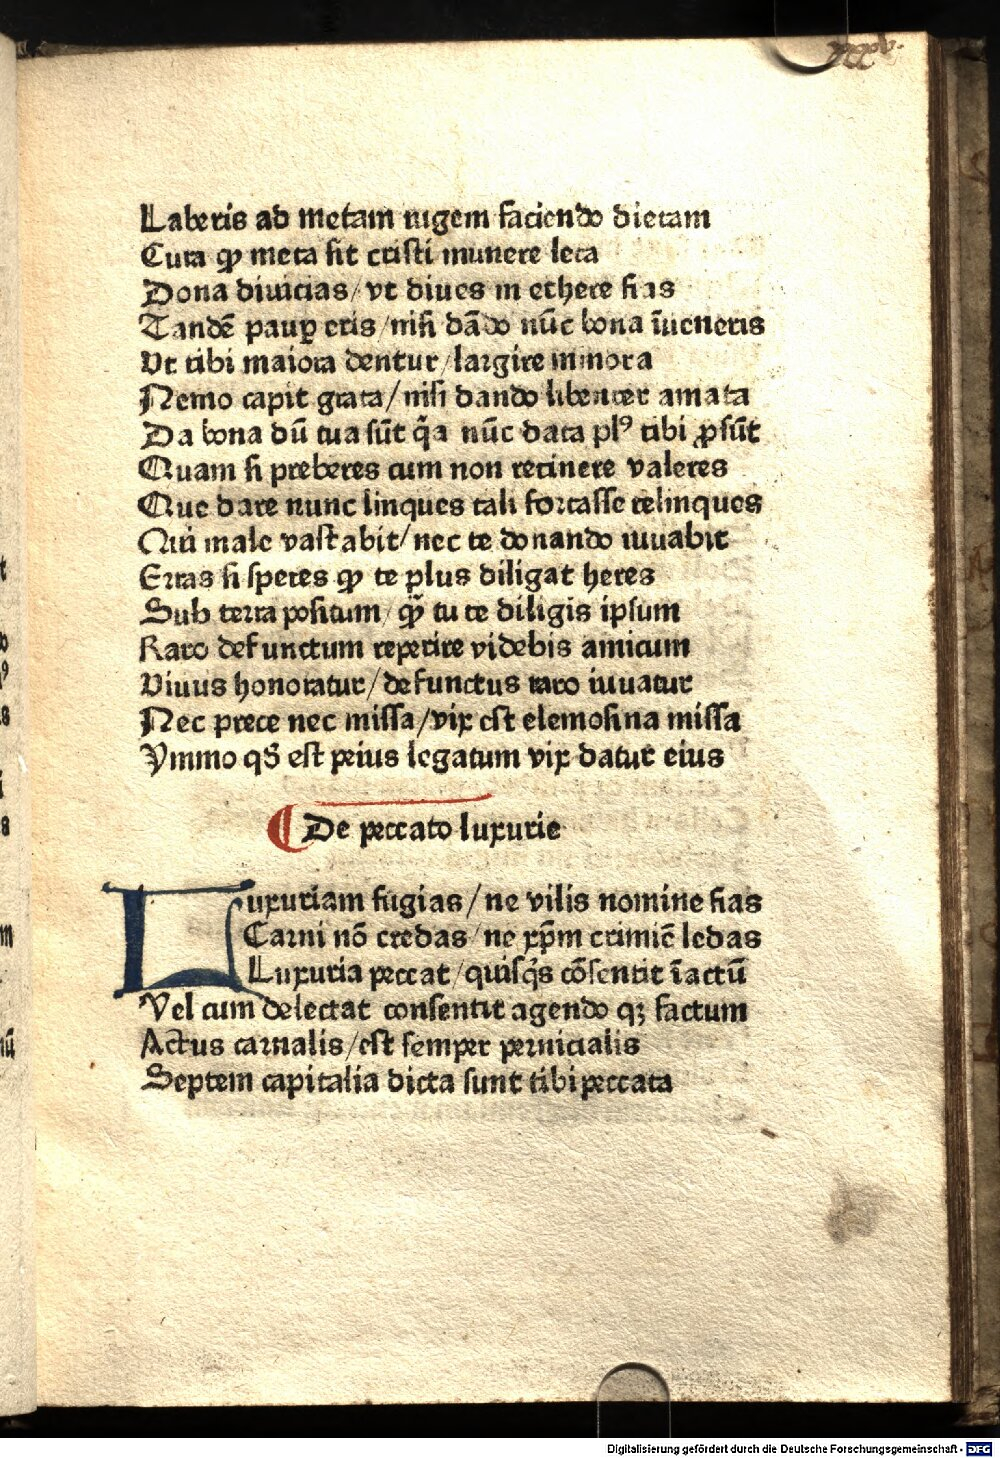 Laberis ad metam iugem faciendo dietam
Cura ꝙ meta sit cristi munere leta
Dona diuicias/ vt diues in ethere fias
Tandē pauꝑ eris/nisi dādo nūc bona īueneris
Vt tibi maiora dentur/largire minora
Nemo capit grata/nisi dando libenter amata
Da bona dū tua sūt q̄a nūc data plꝰ tibi ꝓsūt
Quam si preberes cum non retinere valeres
Que dare nunc linques tali fortasse relinques
Qui male vastabit/nec te donando iuuabit
Erras si speres ꝙ te plus diligat heres
Sub terra positum/ ꝙ̄ tu te diligis ipsum
Raro defunctum reperire videbis amicum
Viuus honoratur/defunctus raro iuuatur
Nec prece nec missa/vix est elemosina missa
Ymmo qđ est peius legatum vix datur eius
De peccato luxurie
Luxuriam fugias/ne vilis nomine fias
Carni nō credas/ne xp̄m crimīe ledas
Luxuria peccat/quisq̄s cōsentit ī actū
Vel cum delectat consentit agendo qꝫ factum
Actus carnalis/est semper pernicialis
Septem capitalia dicta sunt tibi peccata
Digitalisierung gefördert durch die Deutsche Forschungsgemeinschaft - DFG